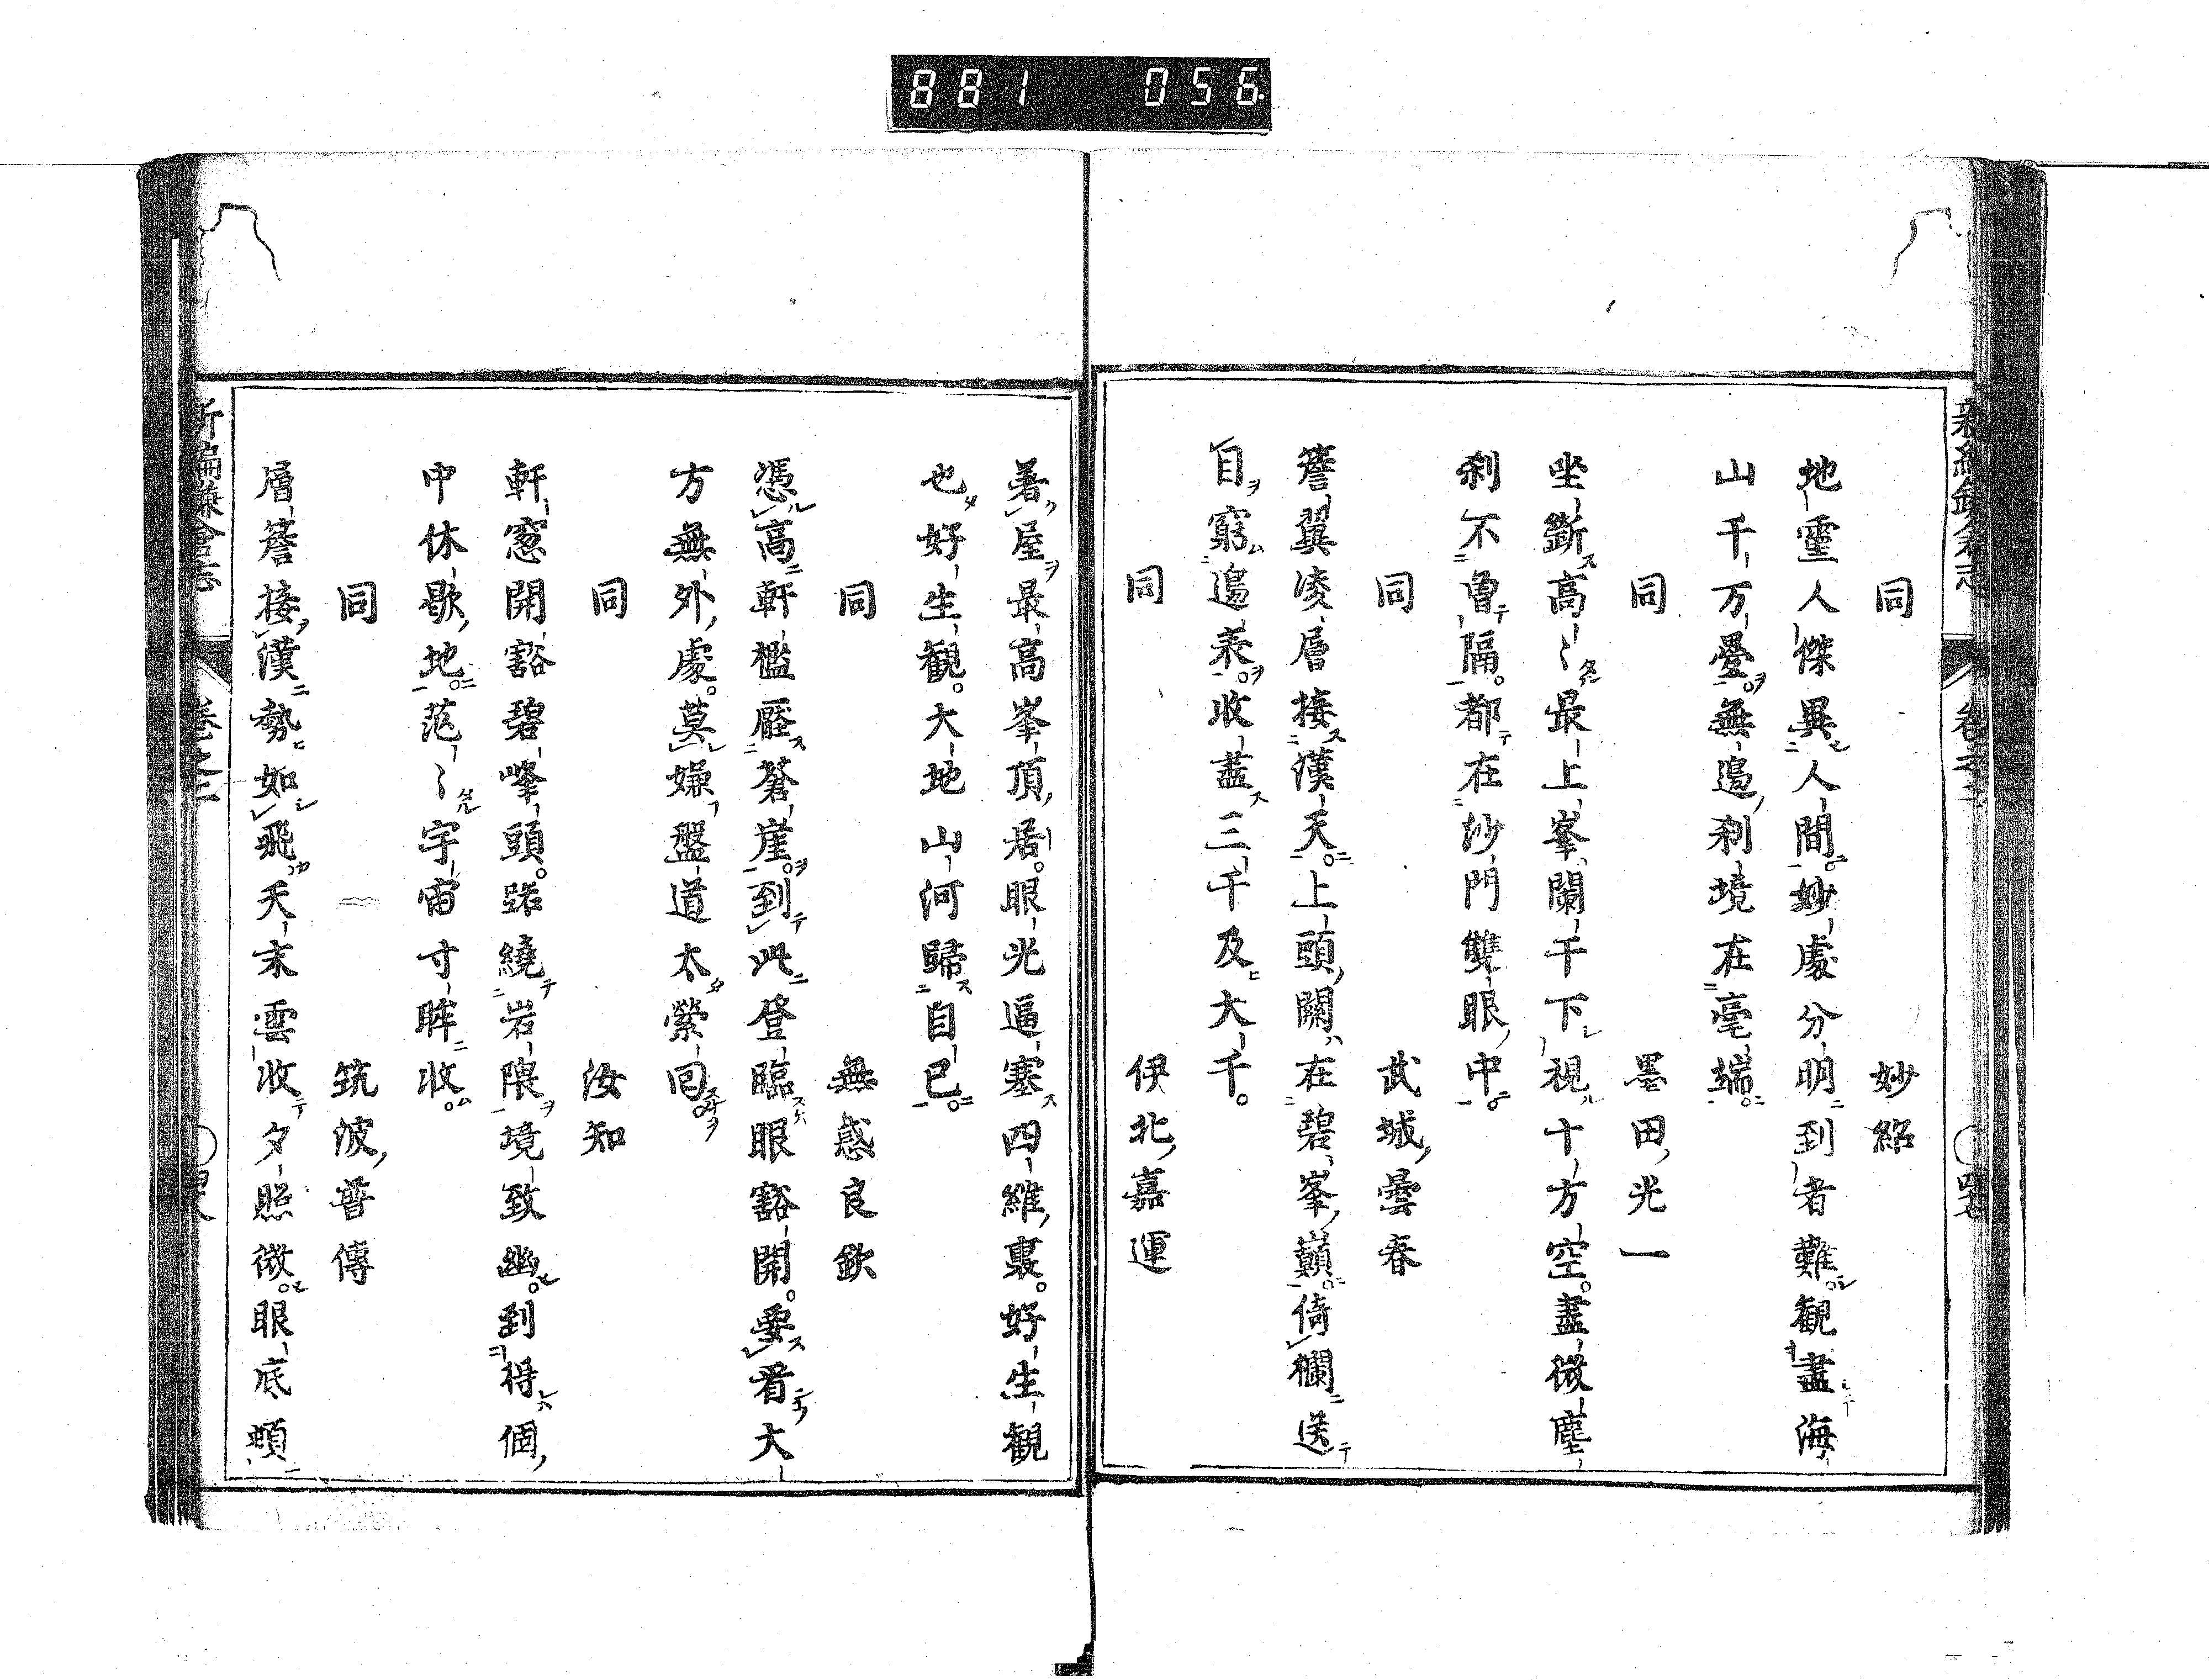 881 056
同 妙紹
地靈人傑異人間妙處分明到者難觀盡海
山千万疊無邊刹境在毫端
同 墨田光一
坐斷高〻最上峯闌干下視十方空盡微塵
刹不曽隔都在沙門雙眼中
同 武城曇春
簷翼凌層接漢天上頭關在碧峯巔倚欄送
目窮邉表收盡三千及大千
同 伊北嘉運
著屋最高峯頂居眼光逼塞四維裏好生觀
也好生觀大地山河歸自已
同 無惑良欽
憑高軒檻壓蒼崖到此登臨眼豁開要看大
方無外處莫嫌盤道太縈回
同 汝知
軒窓開豁碧峰頭路繞岩隈境致幽到得個
中休歇地茫〻宇宙寸眸收
同 筑波普傳
層簷接漢勢如飛天末雲收夕照微眼底頓
新編鎌倉志 卷之二